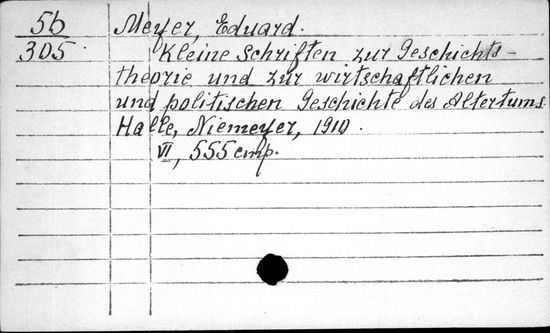 56
305.
Meyer, Eduard.
Kleine Schriften zur Geschichts-
theorie und zur wirtschaftlichen
und politischen Geschichte des Altertums
Halle, Niemeyer, 1910.
VI, 555 стр.